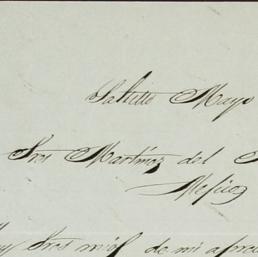 Saltillo Mayo
Sres Martinez del
Mejico
Sres mios de mi